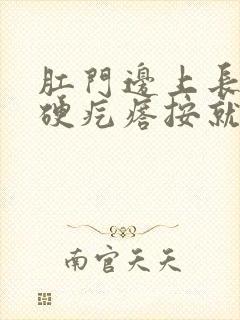 肛門邊上長
硬疙瘩按就
南宫天天